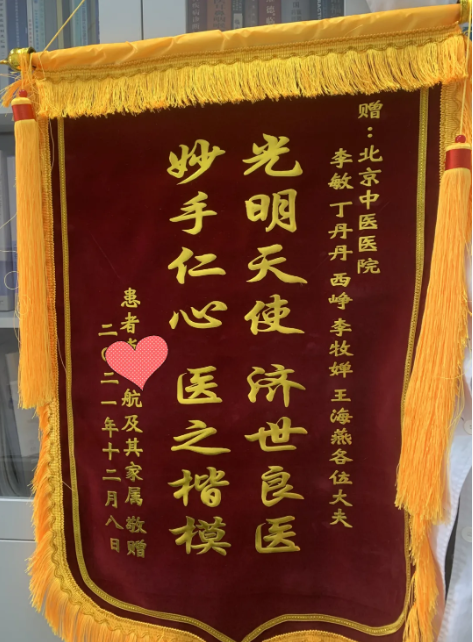 赠：北京中医医院
李敏 丁丹丹 西峥 李牧婵 王海燕各位大夫
光明天使 济世良医
妙手仁心 医之楷模
患者 航及其家属 敬赠
二〇二一年十二月八日